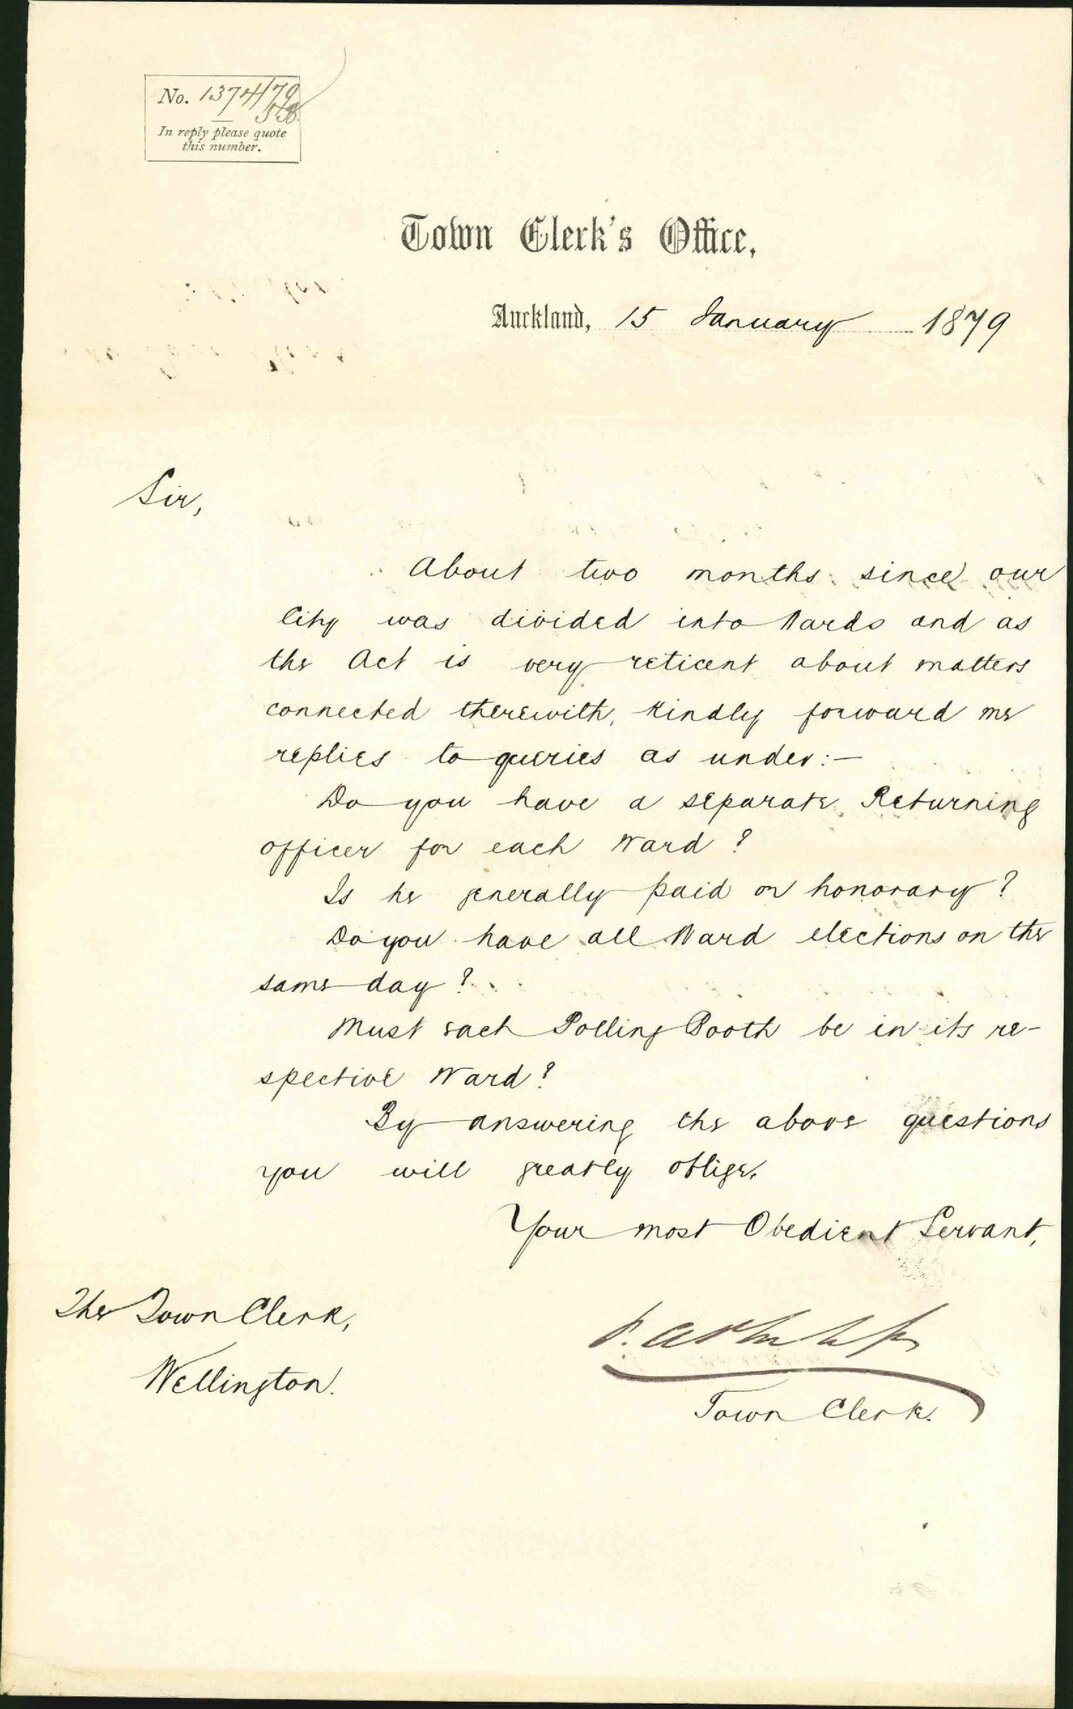 No. 1374/79
In reply please quote
this number.
Town Clerk's Office,
Auckland, 15 January 1879
Sir,
About two months since our
City was divided into Wards and as
the Act is very reticent about matters
connected therewith, kindly forward me
replies to queries as under:-
Do you have a separate Returning
officer for each Ward?
Is he generally paid or honorary?
Do you have all Ward elections on the
same day?
Must each Polling Booth be in its re-
spective Ward?
By answering the above questions
you will greatly oblige.
Your most Obedient Servant,
The Town Clerk,
Wellington.
Town Clerk.